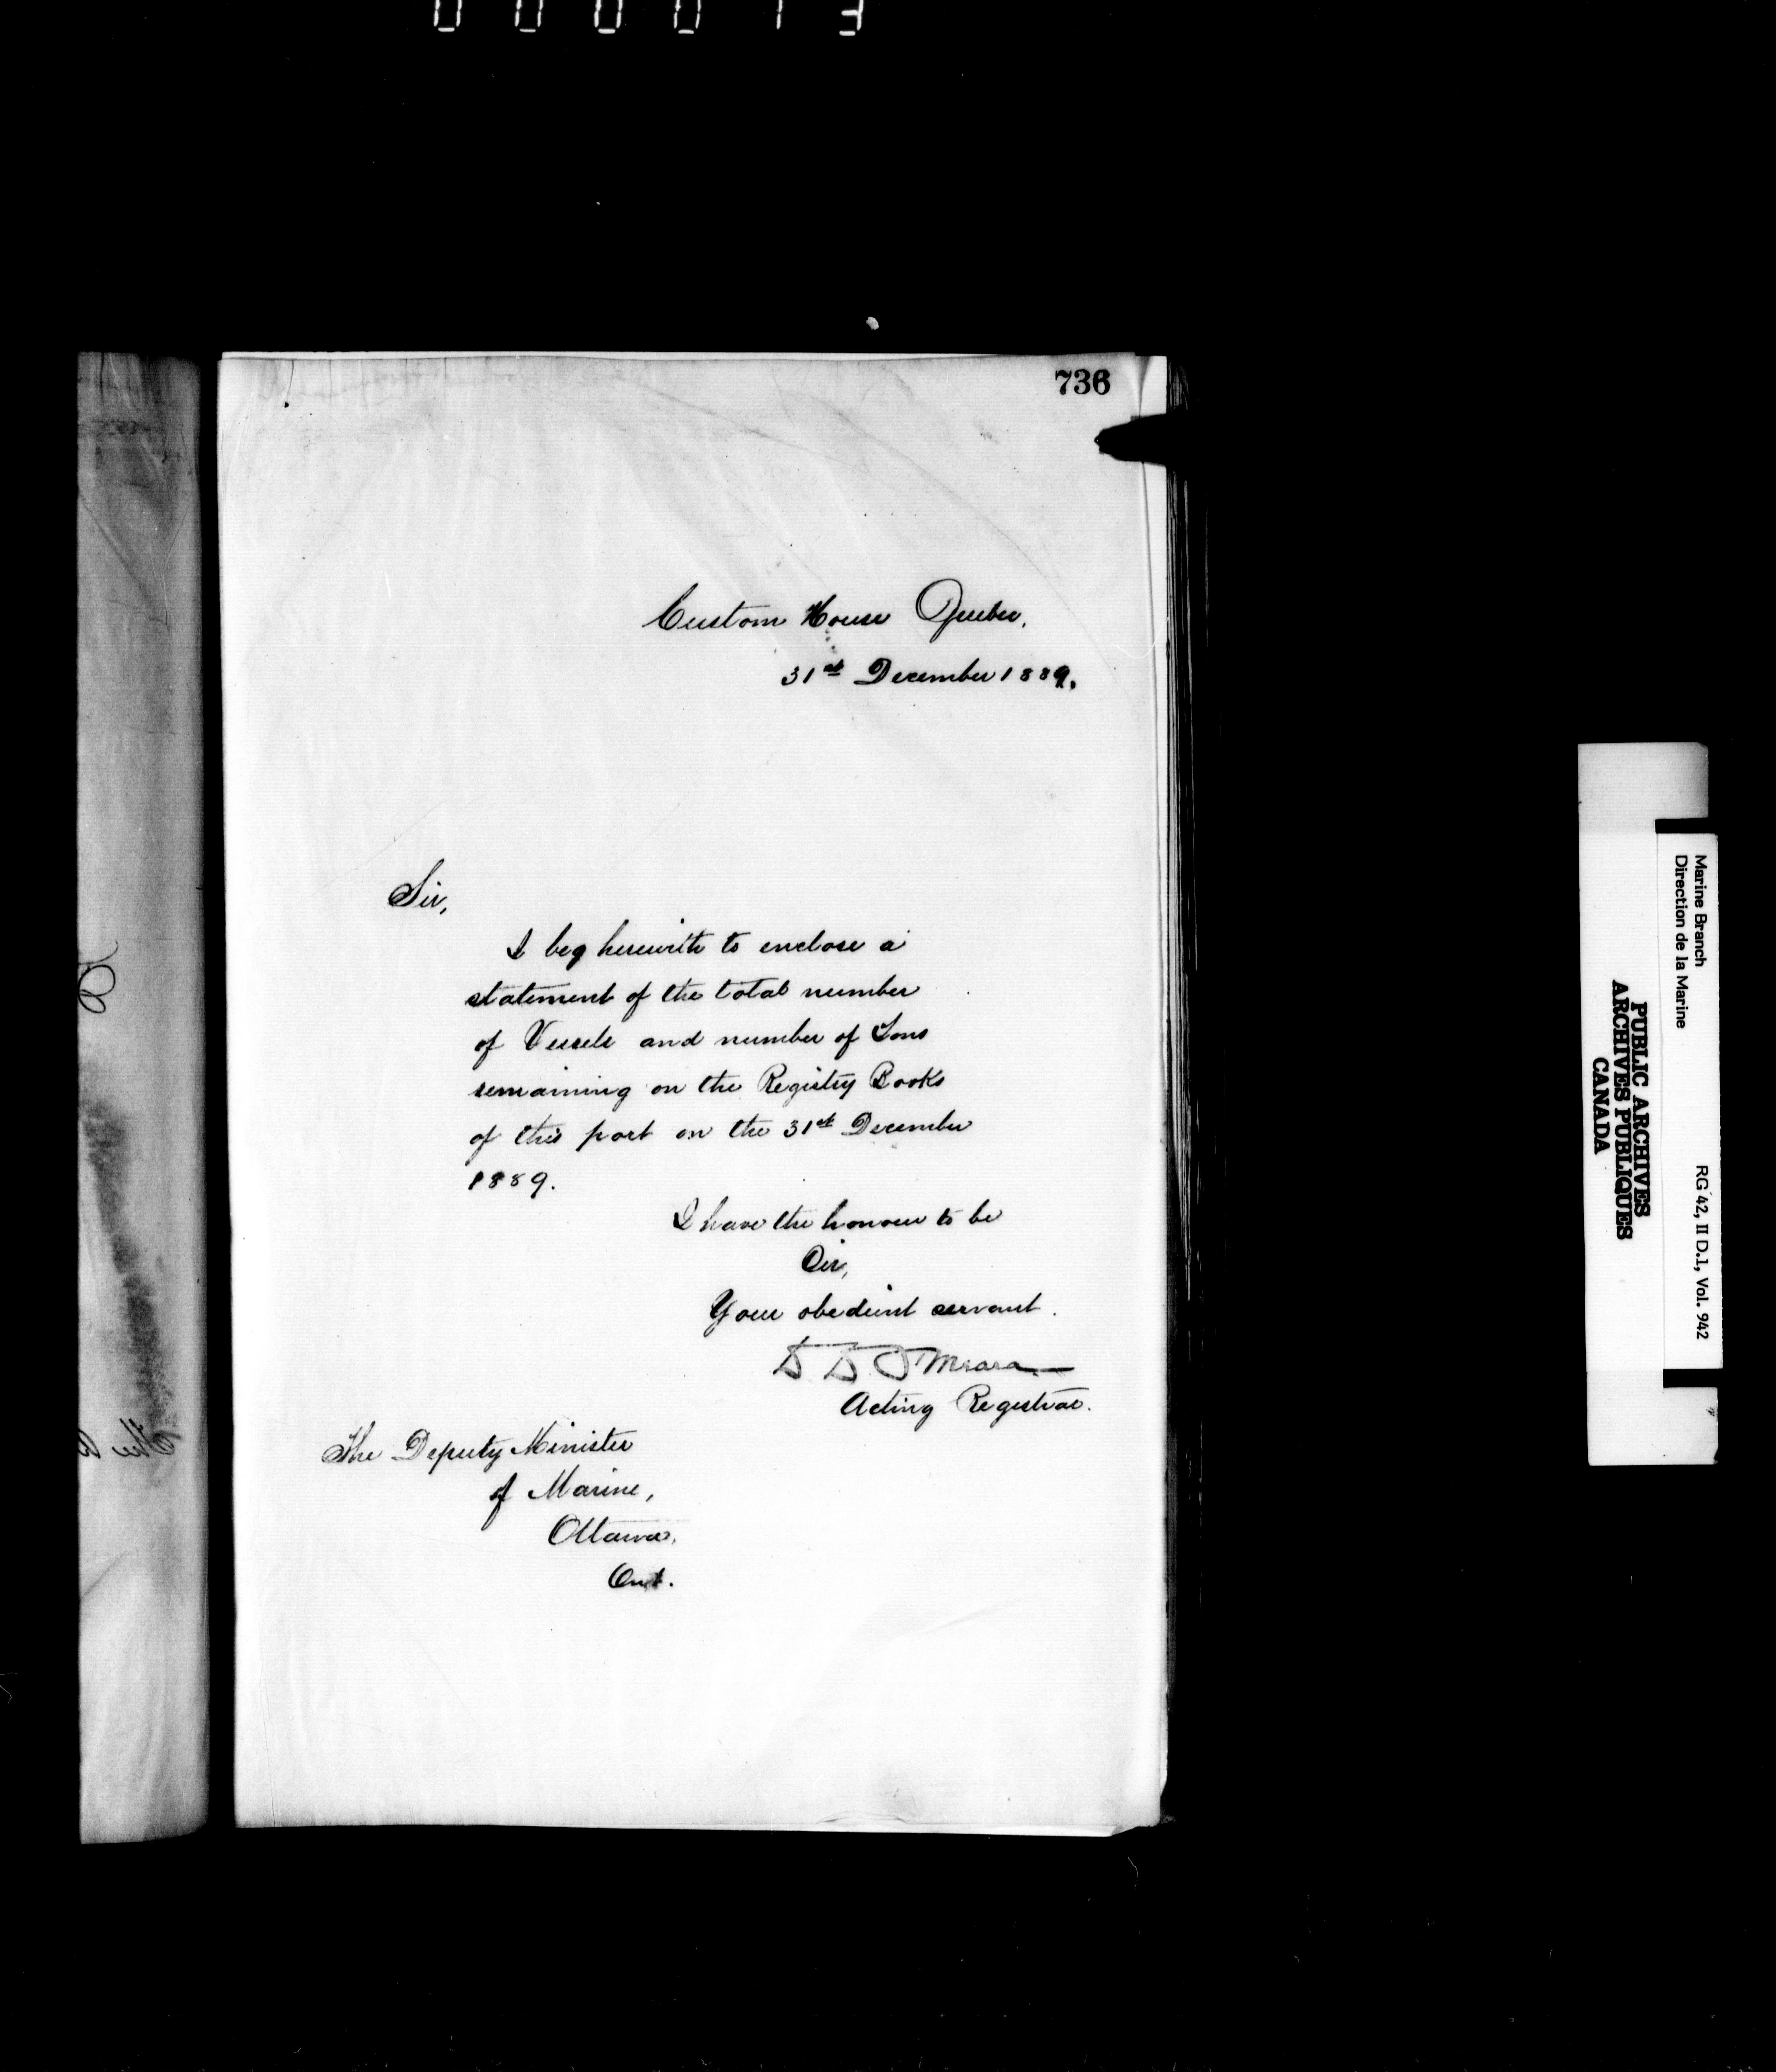 736
Custom House Quebec.
31st December 1889.
Sir,
I beg herewith to enclose a
statement of the total number
of Vessels and number of Tons
remaining on the Registry Books
of this port on the 31st December
1889.
I have the honour to be
Sir,
Your obedient servant.
D D O'Meara
Acting Registrar.
The Deputy Minister
of Marine,
Ottawa,
Ont.
Marine Branch
Direction de la Marine
RG 42, II D.1, Vol. 942
PUBLIC ARCHIVES
ARCHIVES PUBLIQUES
CANADA